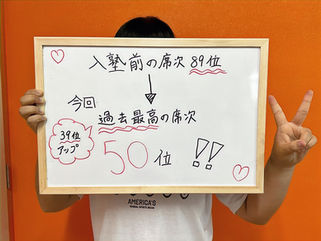 入塾前の席次 89位
今回
過去最高の席次
39位
アップ
50位!!
AMERICA'S